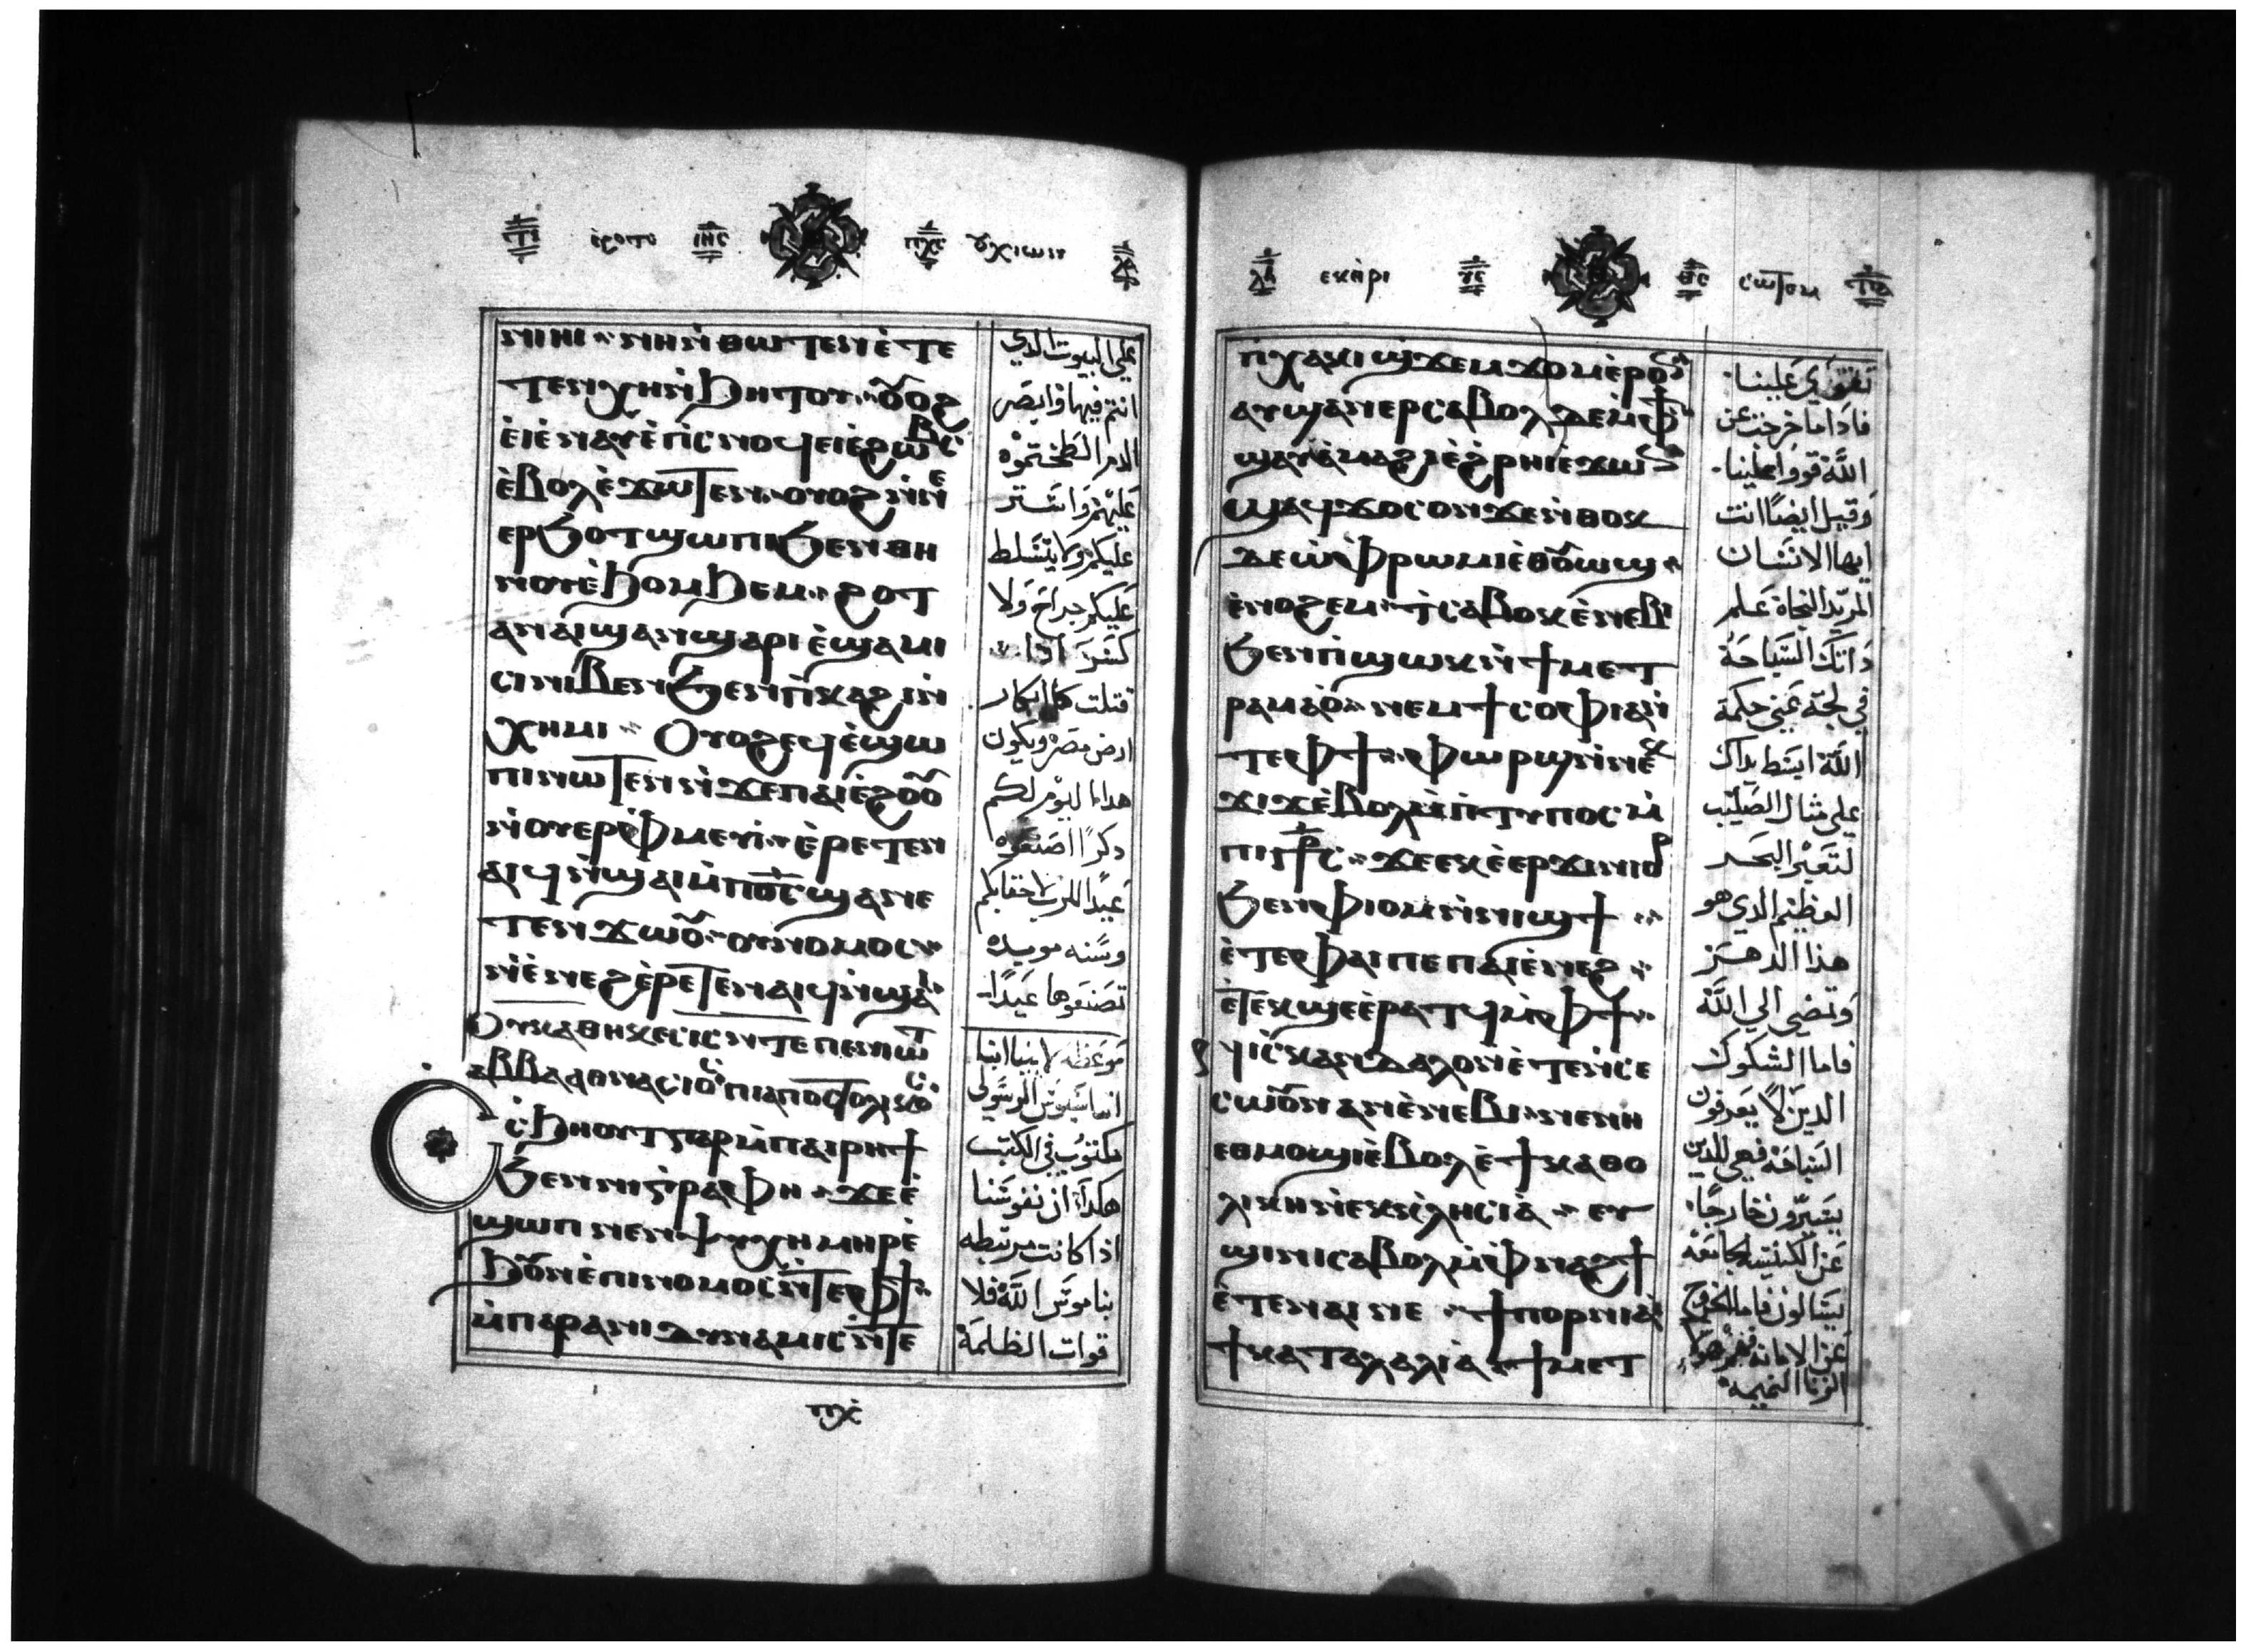 ⲛⲓⲏⲓ ⲛⲏⲛ̀ⲑⲱⲧⲉⲛ ⲉ̀ⲧⲉ
ⲧⲉⲛⲭⲏⲛ̀ϧⲏⲧⲟⲩ ⲟⲩⲟϩ
ⲉ̀ⲓⲉ̀ⲛⲁⲩ ⲉ̀ⲡⲓⲥⲛⲟϥ ⲉⲓⲉ̀ϩⲱⲃⲥ
ⲉ̀ⲃⲟⲗ ⲉ̀ϫⲱⲧⲉⲛ ⲟⲩⲟϩ ⲛ̀ⲛⲉ
ⲉⲣϧⲟⲧ ϣⲱⲡⲓ ϧⲉⲛ ⲑⲏ
ⲛⲟⲩ ⲉ̀ϧⲟⲙϧⲉⲙ ϩⲟⲧ
ⲁⲛ ⲁⲓϣⲁⲛϣⲁⲣⲓ ⲉ̀ϣⲁⲙⲓ
ⲥⲓ ⲛⲓⲃⲉⲛ ϧⲉⲛ ⲡ̀ⲕⲁϩⲓ ⲛ̀
ⲭⲏⲙⲓ ⲟⲩⲟϩ ⲉϥⲉ̀ϣⲱ
ⲡⲓ ⲛⲱⲧⲉⲛ ⲛ̀ϫⲉ ⲡⲁⲓⲉ̀ϩⲟⲟⲩ
ⲛ̀ⲟⲩⲉⲣⲫ̀ⲙⲉⲩⲓ̀ ⲉ̀ⲣⲉⲧⲉⲛ
ⲁⲓϥ ⲛ̀ϣⲁⲓ ⲙ̀ⲡⲟ̅ⲥ̅ ϣⲁⲛⲉ
ⲧⲉⲛϫⲱⲟⲩ ⲟⲩⲛⲟⲙⲟⲥ
ⲛ̀ⲉ̀ⲛⲉϩ ⲉ̀ⲣⲉⲧⲉⲛⲁⲓϥ ⲛ̀ϣⲁⲓ
ⲟⲩⲕⲁⲑⲏⲭⲉⲥⲓⲥ ⲛ̀ⲧⲉ ⲡⲉⲛⲓⲱⲧ
ⲁⲃⲃⲁ ⲁⲑⲛⲁⲥⲓⲟⲥ ⲡⲓⲁⲡⲟⲥⲧⲟⲗⲓⲕⲟⲥ
ⲥ̀ϧⲏⲟⲩⲧ ⲅⲁⲣ ⲙ̀ⲡⲁⲓⲣⲏϯ
ϧⲉⲛ ⲛⲓⲅ̀ⲣⲁⲫⲏ ϫⲉ ⲉ̀
ϣⲱⲡ ⲛⲉⲛⲯⲩⲭⲏ ⲙⲏⲣ ⲉ̀
ϧⲟⲩⲛ ⲉ̀ⲡⲓⲛⲟⲙⲟⲥ ⲛ̀ⲧⲉ ⲫϯ
ⲙ̀ⲡⲁⲣⲁⲛⲓⲇⲩⲛⲁⲙⲓⲥ ⲛ̀ⲧⲉ
ⲡⲭ̀
على البيوت الذي
انتم فيها وابصر
عليهم واستر
عليكم ولا يتسلط
عليكم جراح ولا
قتلت كل ابكار
ارض مصر ويكون
هذا اليوم لكم
عيدًا للرب لاحقابكم
وسنه موبده
تصنعوها عيدًا
موعظه لابينا انبا
اتناسيوس الرسولى
مكتوب فى الكتب
هكذا ان نفوسنا
اذا كانت مرتبطه
بناموس الله فلا
قوات الظلمة
ⲡ̀ⲭⲁⲕⲓ ϣϫⲉⲙϫⲟⲙ ⲉ̀ⲣⲟⲛ
ⲁⲩϣⲁⲛⲉⲣⲥⲁⲃⲟⲗ ⲇⲉ ⲙ̀ⲫϯ
ϣⲁⲩⲁ̀ⲙⲁϩⲓ ⲉ̀ϩⲣⲏⲓ ⲉϫⲱⲛ
ϣⲁϥϫⲟⲥ ⲟⲛ ϫⲉ ⲛ̀ⲑⲟⲕ
ⲇⲉ ⲱ̀ ⲫ̀ⲣⲱⲙⲓ ⲉⲑⲟⲩⲱϣ
ⲉ̀ⲛⲟϩⲉⲙ ⲙ̀ⲥⲁⲃⲟⲕ ⲉ̀ⲛⲉⲃⲓ
ϧⲉⲛ ⲡ̀ϣⲱⲕ ⲛ̀ϯⲙⲉⲧ
ⲣⲁⲙⲁⲟ̀ ⲛⲉⲙ ϯⲥⲟⲫⲓⲁ ⲛ̀
ⲧⲉ ⲫϯ ⲫⲱⲣϣ ⲛ̀ⲛⲉⲕ
ϫⲓϫ ⲉ̀ⲃⲟⲗ ⲙ̀ⲡ̀ⲧⲩⲡⲟⲥ ⲙ̀
ⲡⲓⲥⲧ̅ⲣ̅ⲥ̅ ϫⲉ ⲉⲕⲉ̀ⲉⲣϫⲓⲛⲓⲟⲣ
ϧⲉⲛ ⲫⲓⲟⲙ ⲛ̀ⲛⲓϣϯ
ⲉ̀ⲧⲉ ⲫⲁⲓ ⲡⲉ ⲡⲁⲓⲉ̀ⲛⲉϩ
ⲉ̀ⲧⲉⲕϣⲉ ⲉ̀ⲣⲁⲧϥ ⲙ̀ⲫϯ
ⲛⲓⲥⲕⲁⲛⲇⲁⲗⲟⲛ ⲉ̀ⲧⲉⲛⲥⲉ
ⲥⲱⲟⲩⲛ ⲁⲛ ⲉ̀ⲛⲉⲃⲓ ⲛⲉ ⲛⲏ
ⲉⲑⲙⲟϣⲓ ⲉ̀ⲃⲟⲗ ⲉ̀ϯⲕⲁⲑⲟ
ⲗⲓⲕⲏ ⲛ̀ⲉⲕⲕⲗⲏⲥⲓⲁ̀ ⲉⲩ
ϣⲓⲛⲓ ⲥⲁⲃⲟⲗ ⲙ̀ⲫⲛⲁϩϯ
ⲉ̀ⲧⲉ ⲛⲁⲓ ⲛⲉ ϯⲡⲟⲣⲛⲓⲁ̀
ϯⲕⲁⲧⲁⲗⲁⲗⲓⲁ̀ ϯⲙⲉⲧ
تقوي علينا
فاذا ما خرجت عن
الله قووا علينا
وقيل ايضًا انت
ايها الانسان
المريد النجاة علم
ذاتك السباحة
فى لجة غنى حكمة
الله ابسط يداك
على مثال الصليب
لتعبر البحر
العظيم الذي هو
هذا الدهر
وتمضى الى الله
فاما الشكوك
الذين لا يعرفون
السباحة فهى للذين
يسيرون خارجًا
عن الكنيسه الجامعه
الزنا النميمه